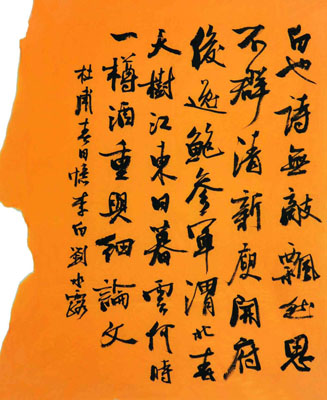 白也詩無敵飄然思
不群清新庾開府
俊逸鮑參軍渭北春
天樹江東日暮雲何時
一樽酒重與細論文
杜甫春日憶李白劉